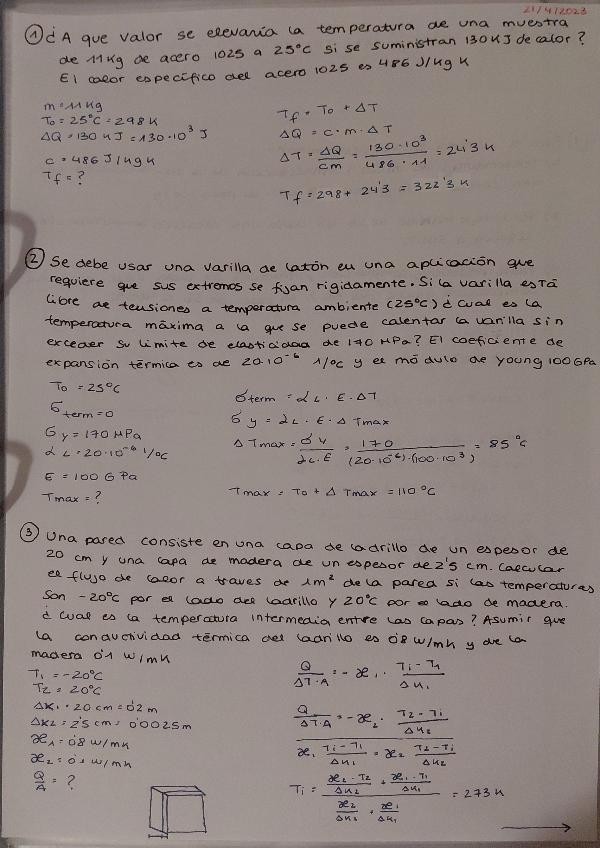 21/4/2023
① ¿A que valor se elevaría la temperatura de una muestra
de 11Kg de acero 1025 a 25°C si se suministran 130KJ de calor?
El calor específico del acero 1025 es 486 J/Kg K
m = 11 Kg
T₀ = 25°C = 298 K
ΔQ = 130 KJ = 130·10³ J
c = 486 J/Kg K
Tf = ?
Tf = T₀ + ΔT
ΔQ = c·m·ΔT
ΔT = ΔQ/cm = 130·10³/486·11 = 24'3 K
Tf = 298 + 24'3 = 322'3 K
② Se debe usar una varilla de latón en una aplicación que
requiere que sus extremos se fijan rigidamente. Si la varilla está
libre de tensiones a temperatura ambiente (25°C) ¿cual es la
temperatura máxima a la que se puede calentar la varilla sin
exceder su límite de elasticidad de 170 MPa? El coeficiente de
expansión térmica es de 20·10⁻⁶ 1/°C y el módulo de young 100GPa
T₀ = 25°C
σterm = 0
σy = 170 MPa
αL = 20·10⁻⁶ 1/°C
E = 100 GPa
Tmax = ?
σterm = αL·E·ΔT
σy = αL·E·ΔTmax
ΔTmax = σy/αL·E = 170/(20·10⁻⁶)·(100·10³) = 85 °C
Tmax = T₀ + ΔTmax = 110 °C
③ Una pared consiste en una capa de ladrillo de un espesor de
20 cm y una capa de madera de un espesor de 2'5 cm. Calcular
el flujo de calor a traves de 1m² de la pared si las temperaturas
son -20°C por el lado del ladrillo y 20°C por el lado de madera.
¿Cual es la temperatura intermedia entre las capas? Asumir que
la conductividad térmica del ladrillo es 0'8 W/mk y de la
madera 0'1 W/mk
T₁ = -20°C
T₂ = 20°C
Δx₁ = 20 cm = 0'2 m
Δx₂ = 2'5 cm = 0'0025m
æ₁ = 0'8 W/mk
æ₂ = 0'1 W/mk
Q/A = ?
Q/ΔT·A = -æ₁·Ti-T₁/Δx₁
Q/ΔT·A = -æ₂·T₂-Ti/Δx₂
æ₁ Ti-T₁/Δx₁ = æ₂ T₂-Ti/Δx₂
Ti = (æ₂·T₂/Δx₂ + æ₁·T₁/Δx₁)/(æ₂/Δx₂ + æ₁/Δx₁) = 273 K